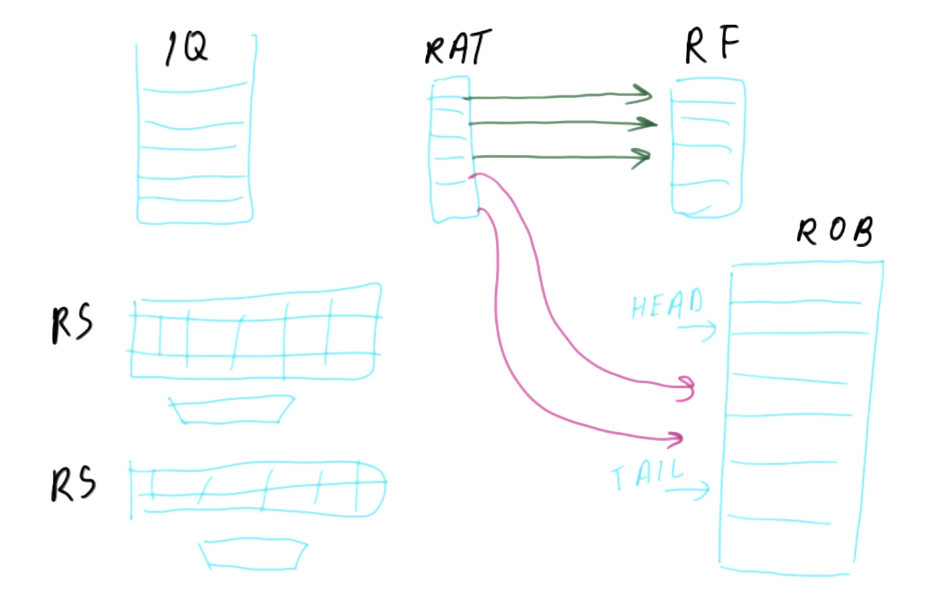 IQ
RAT
RF
ROB
HEAD
RS
TAIL
RS